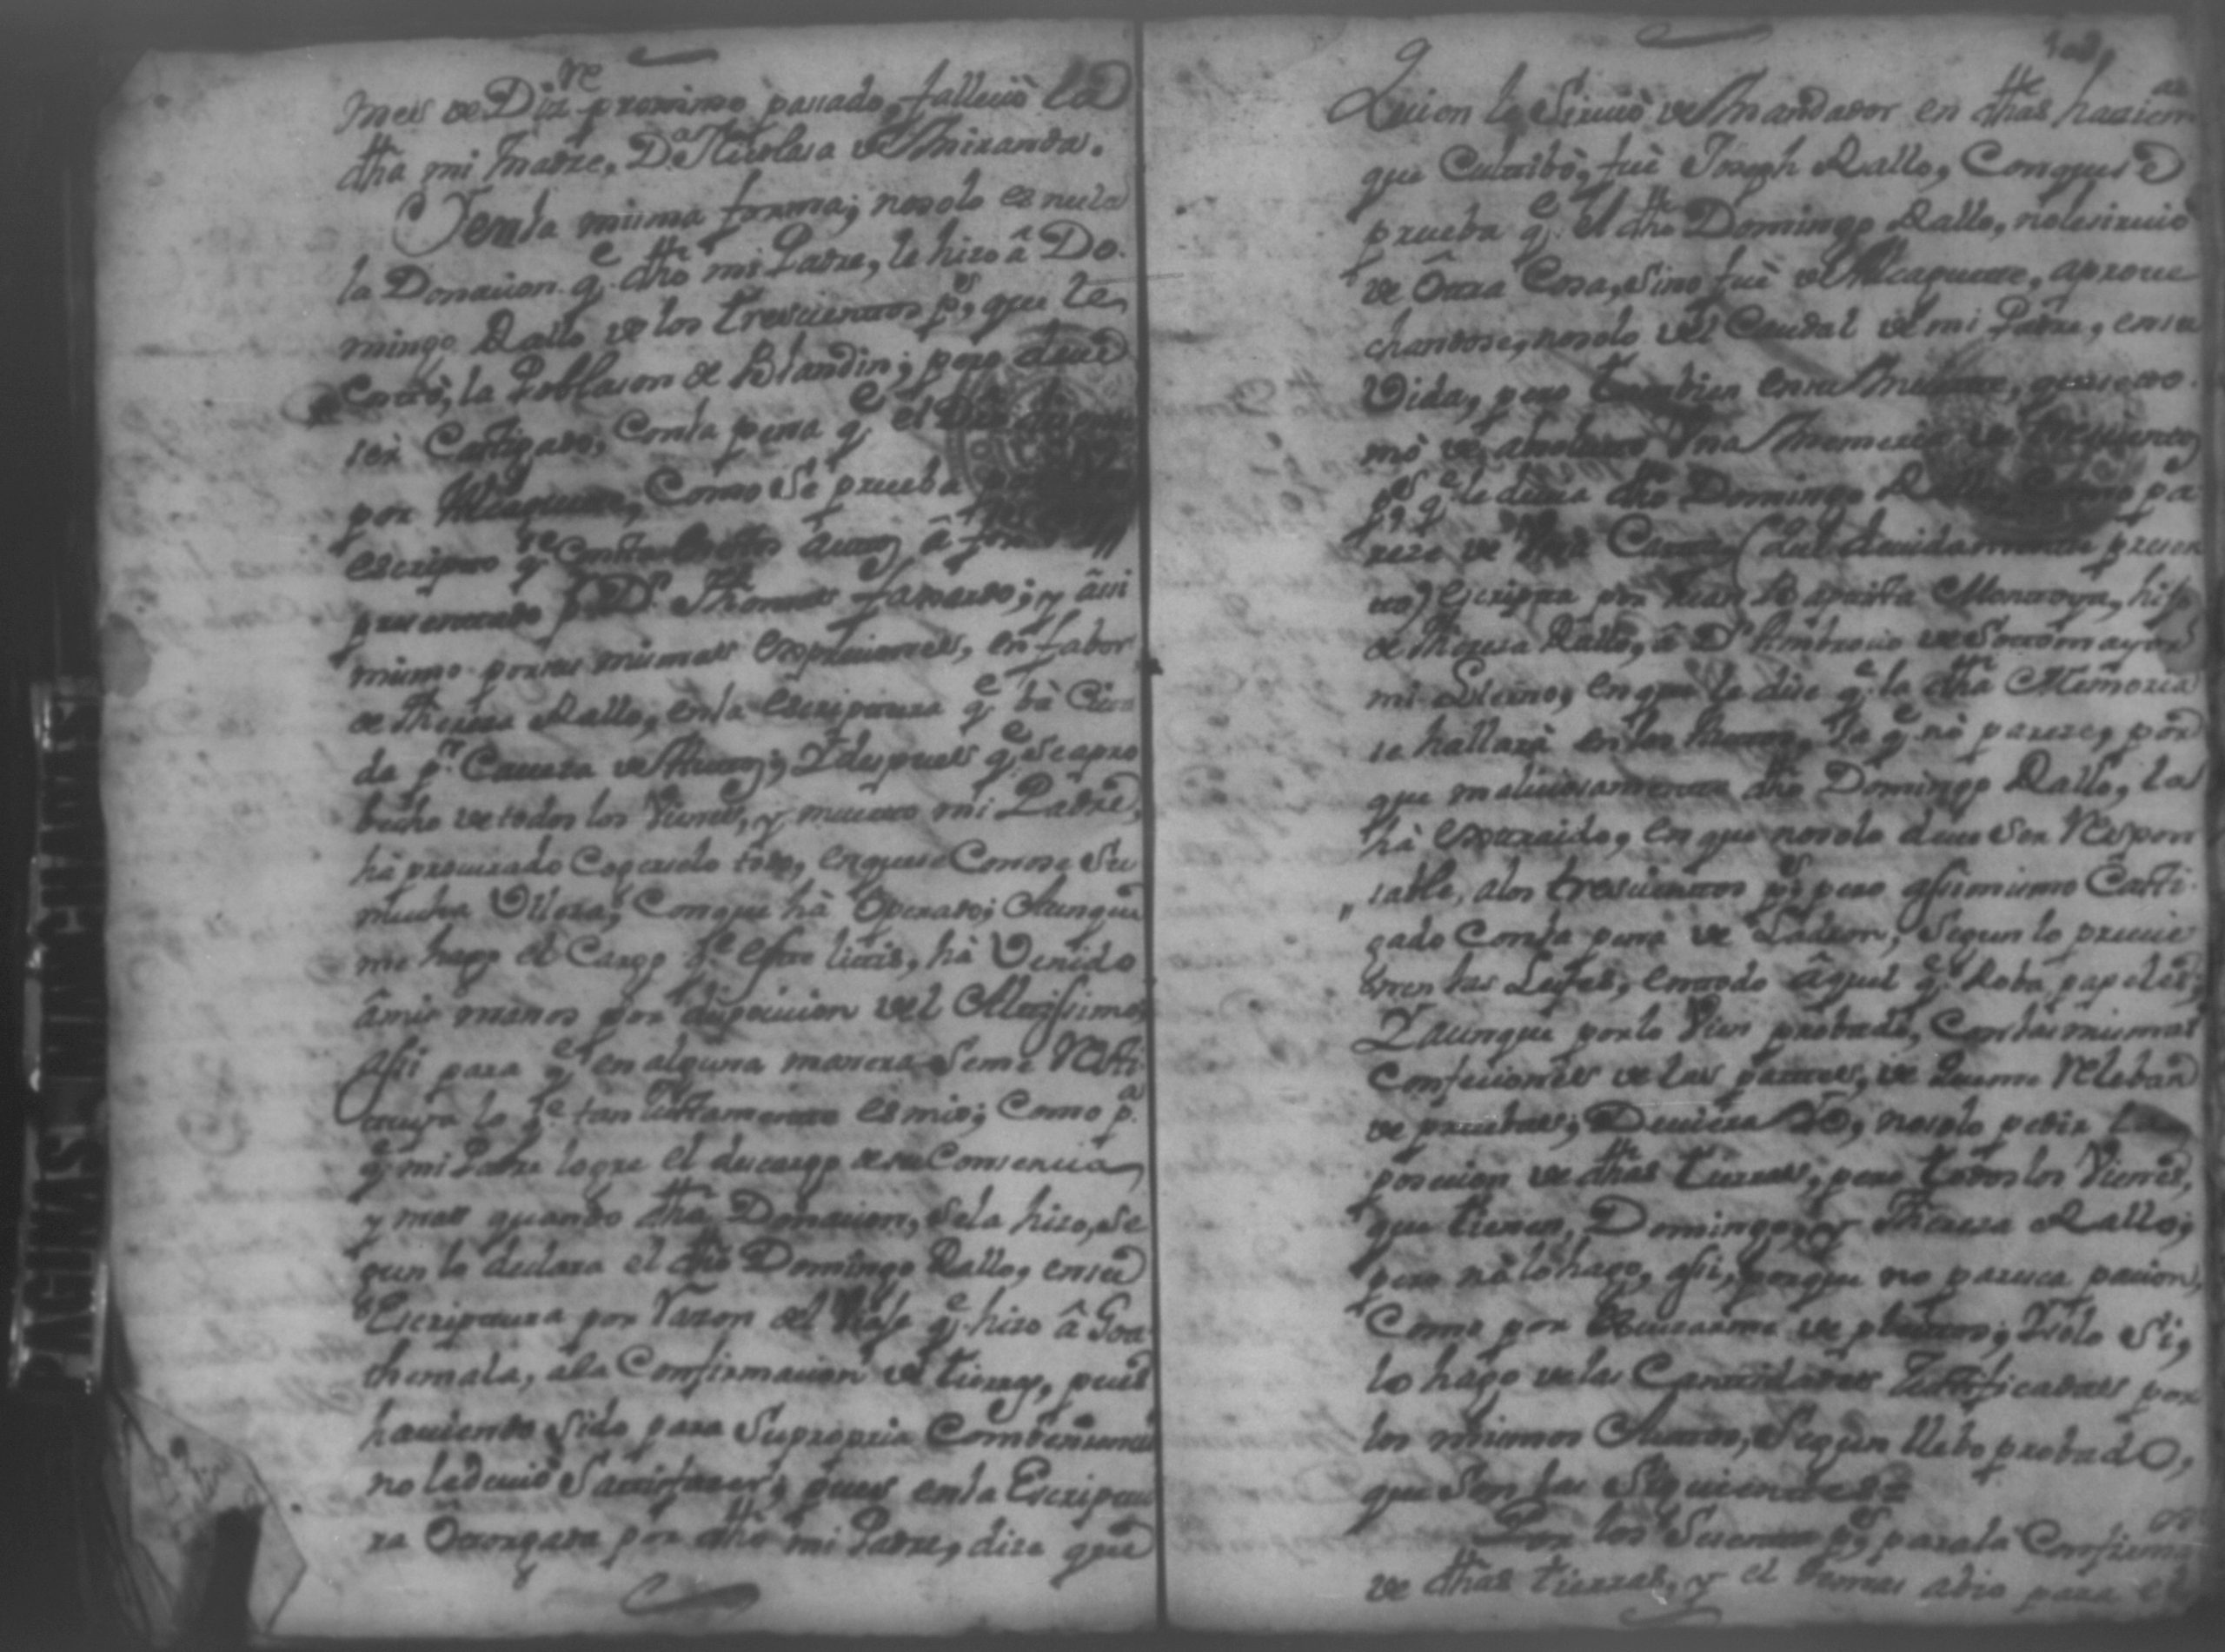 mes de Diz.re proximo pasado, fallecio la
dha mi Madre, D.a Nicolasa de Miranda.
Yenla misma forma; nosolo es nula
la Donacion q.e dho mi Padre, le hizo â Do-
mingo Rallo de los trescientos p.s, que le
Costò, la Poblason de Blandin; pero deve
ser Castigado, Conla pena q.e el
por Alcaguete, Como Se prueba
escripto q.e Consta autos â
presentado p.r D.n Thomas y asi
mismo por sus mismas Expreciones, en fabor
de Theresa Rallo, enla Escriptura q.e bà Cita
da p.r Cavesa de Autos; Y despues q.e Se apro
becho de todos los Vienes, y muerto mi Padre,
hà procurado Cogerselo todo, enquese Conose Su
mucha Con que hà Operado; Aunque
me hago el Cargo q.e esta litis, hà Venido
âmis manos por disposicion del Altissimo,
assi para q.e en alguna manera Seme Resti
tuya lo q.e tan Justamente es mio; Como p.a
q.e mi Padre logre el descargo desu Consencia,
y mas quando dha Donacion, Sela hizo, Se
gun lo declara el dho Domingo Rallo, ensu
Escriptura por Razon del Viaje q.e hizo â Goa
themala, ala Confirmacion de tierras, pues
haviendo Sido para Supropria Combeniencia
no ledevio Satisfacer; pues enla Escriptu
ra Otorgada por dho mi Padre, dize que
Quien le Sirvio de Mandador en dhas hacien.as
que Cultibò, fuè Joseph Rallo, Conque Se
prueba q.e el dho Domingo Rallo, nolesirvio
de Otra Cosa, Sino fuè de Alcaguete, aprove
chandose, nosolo del Caudal de mi Padre, ensu
Vida, pero tambien ensu Muerte,
mò de Una Memoria de trescientos
p.s q.e le devia dho Domingo Rallo Como pa
rece de Una Carta (que devidamente presen
to) Escripta por Juan Baptista Montoya, hijo
de Theresa Rallo, â D.n Ambrocio de Sotomayor
mi en que le dise q.e la dha Memoria
se hallarà en los q.e no parece, por
que maliciosamente dho Domingo Rallo, la
hà extraido, en que nosolo deve Ser Respon
sable, alos trescientos p.s pero assimismo Casti
gado Conla pena de Ladron, Segun lo previe
nen las Leyes, entodo âquel q.e Roba papeles,
Yaunque porlo Vien probado, Conlas mismas
Confeciones de las partes, de Quienes Releban
de pruebas; Deviera Yo, nosolo pedir la
posecion de dhas tierras, pero todos los Vienes,
que tienen, Domingo, y Theresa Rallo;
pero nò lo hago, assi, porque no paresca pacion,
Como por de pleitos; Y Solo Si,
lo hago delas Cantidades Justificadas por
los mismos Autos, Segun llebo probado,
que Son las Siguientes=
Por los p.s parala Confirma.on
de dhas tierras, y el dio para el